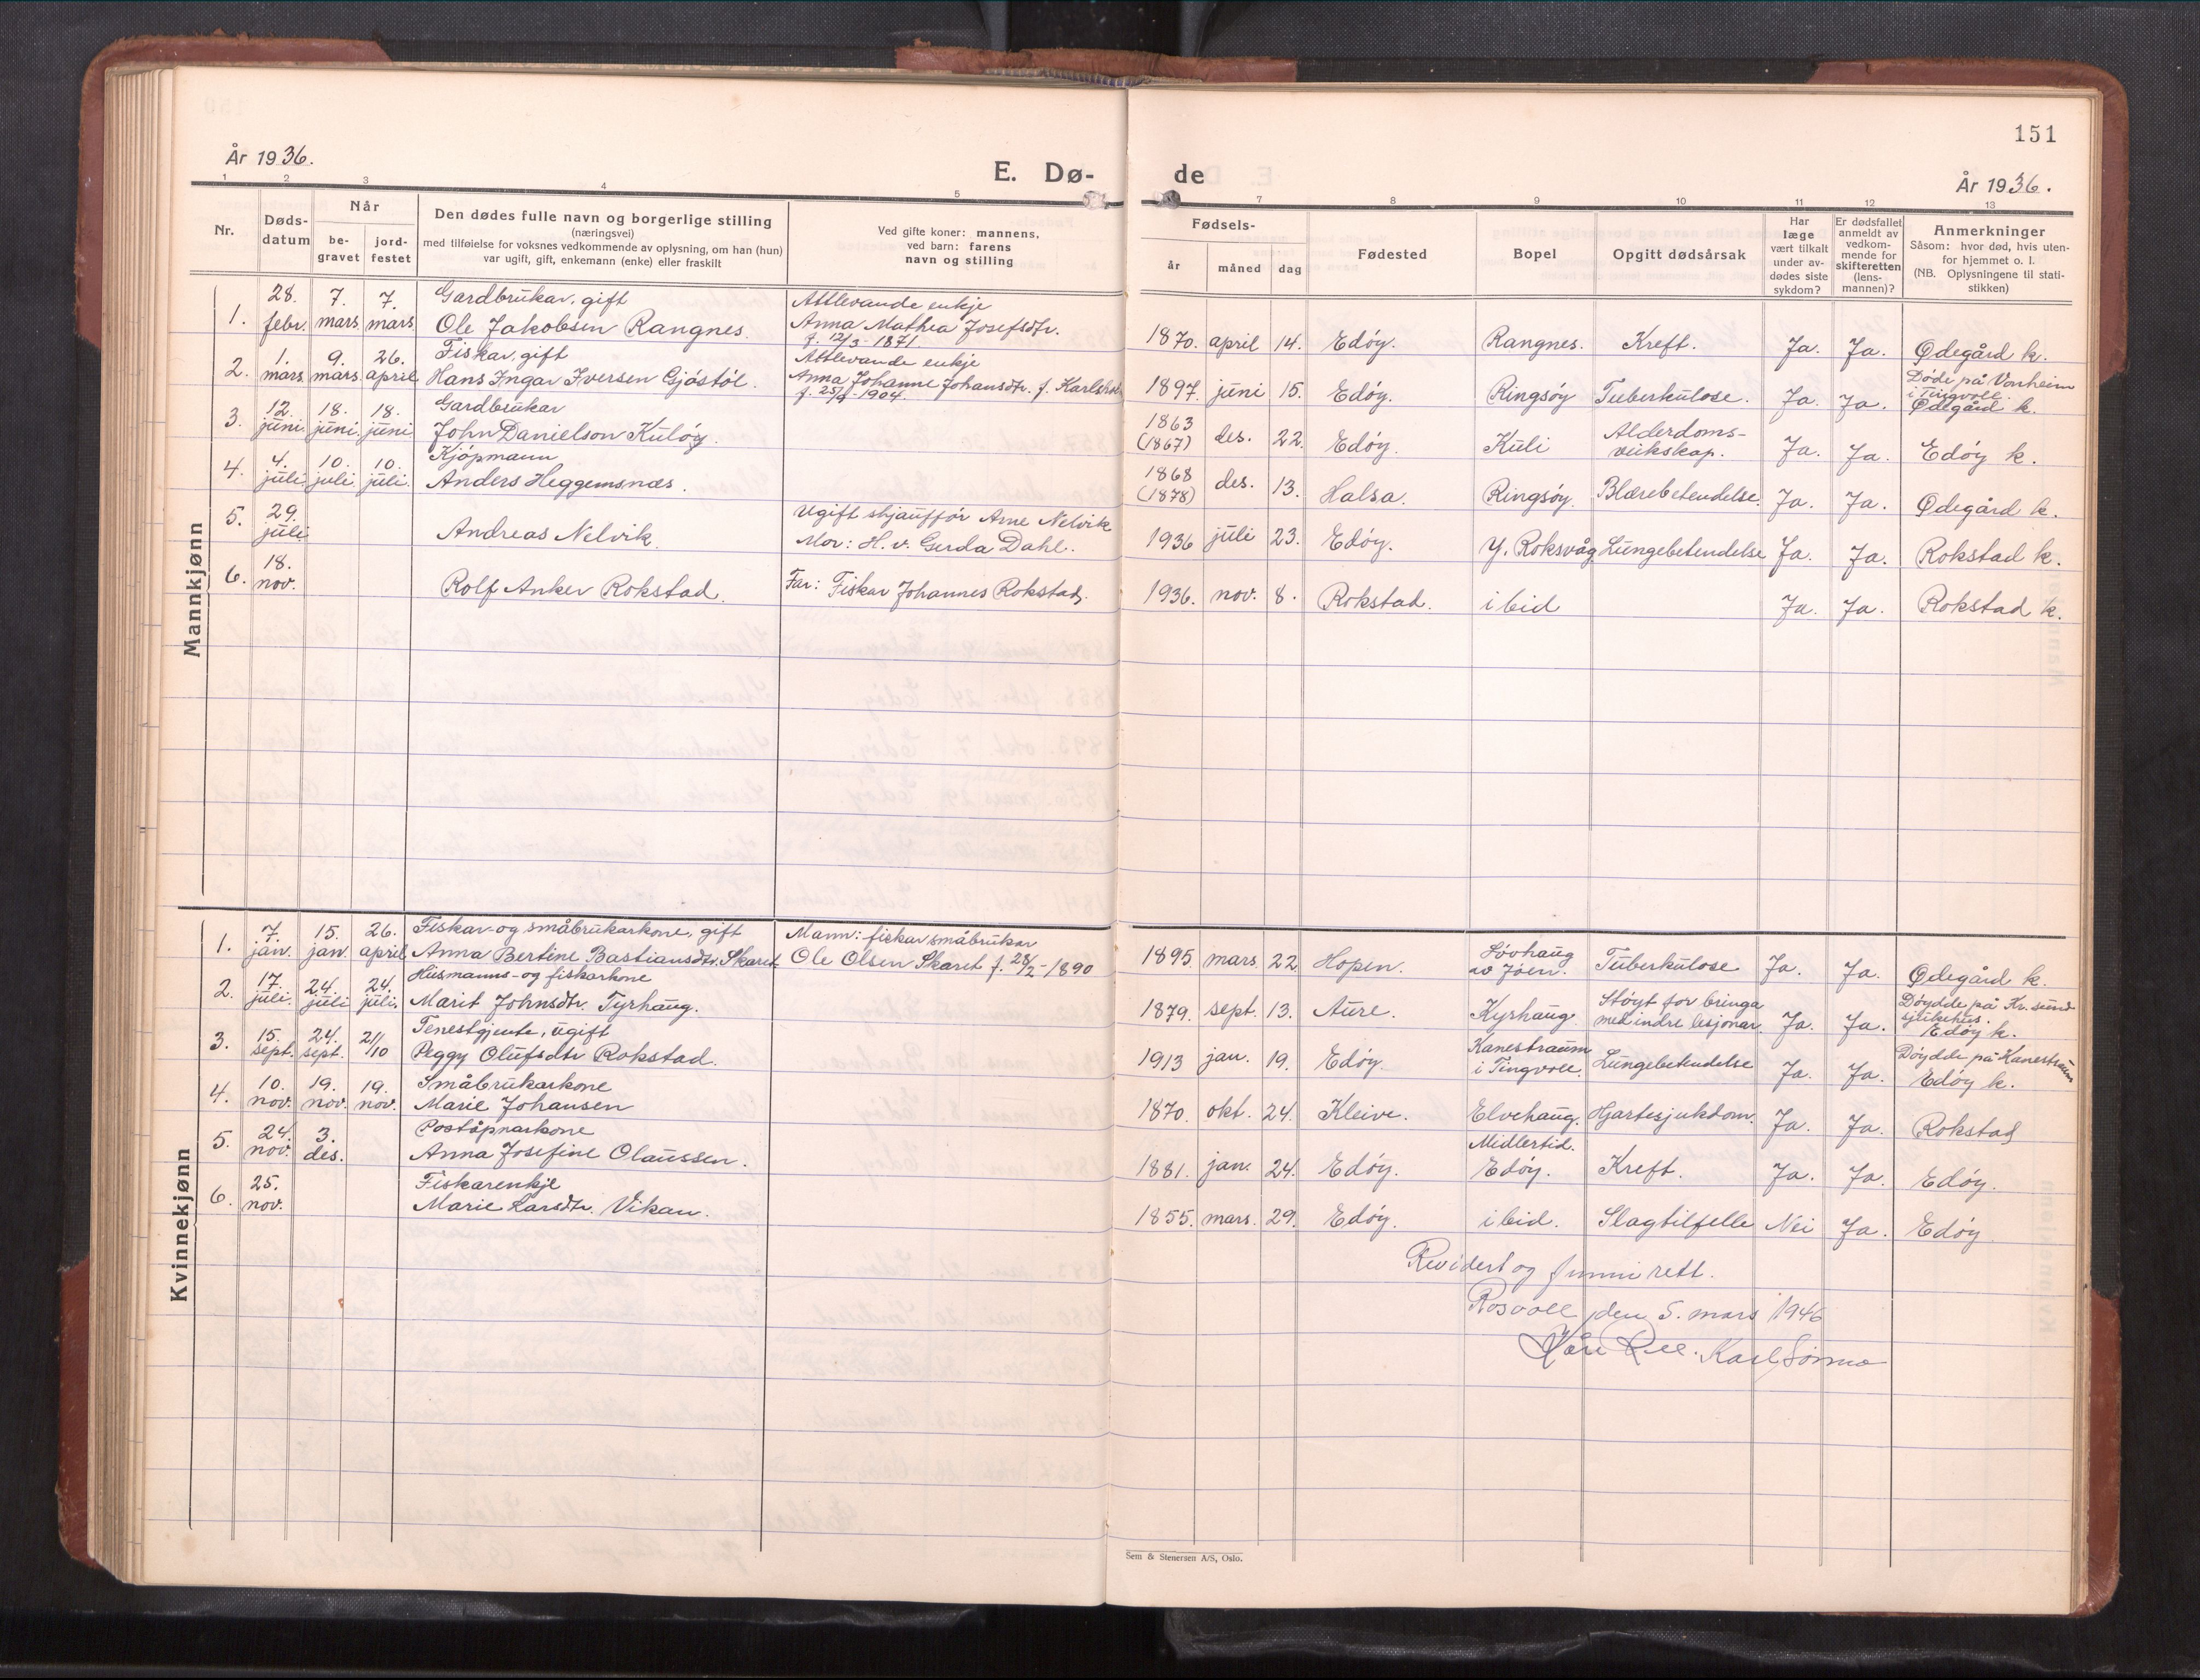 151
År 1936.
E. Dø- de
År 1936.
1 2 3 4 5 7 8 9 10 11 12 13
Nr.
Døds-
datum
Når
be-
gravet
jord-
festet
Den dødes fulle navn og borgerlige stilling
(næringsvei)
med tilføielse for voksnes vedkommende av oplysning, om han (hun)
var ugift, gift, enkemann (enke) eller fraskilt
Ved gifte koner: mannens,
ved barn: farens
navn og stilling
Fødsels-
år måned dag
Fødested
Bopel
Opgitt dødsårsak
Har
læge
vært tilkalt
under av-
dødes siste
sykdom?
Er dødsfallet
anmeldt av
vedkom-
mende for
skifteretten
(lens-
mannen)?
Anmerkninger
Såsom: hvor død, hvis uten-
for hjemmet o. l.
(NB. Oplysningene til stati-
stikken)
Mannkjønn
1. 28. febr. 7. mars 7. mars
Gardbrukar, gift
Ole Jakobsen Rangnes.
Attlevande enkje
Anna Mathea Josefsdtr.
f. 12/3-1871
1870. april 14. Edöy. Rangnes. Kreft. Ja. Ja. Ødegård k.
2. 1. mars 9. mars 26. april
Fiskar, gift
Hans Ingar Iversen Gjöstöl.
Attlevande enkje
Anna Johanne Johansdtr. f.
1897. juni 15. Edöy. Ringsöy Tuberkulose. Ja. Ja.
Døde på Vonheim
i Tingvoll.
Ødegård k.
3. 12. juni. 18. juni. 18. juni
Gardbrukar
John Danielson Kulöy.
1863
(1867) des. 22. Edöy. Kuli
Alderdoms-
veikskap.
Ja. Ja. Edöy k.
4. 4. juli. 10. juli. 10. juli.
Kjöpmann
Anders Heggemsnæs.
1868
(1878) des. 13. Halsa. Ringsöy. Blærebetendelse. Ja. Ja. Ødegård k.
5. 29. juli
Andreas Nelvik.
Ugift sjauffør Arne Nelvik
Mor: H. v. Gerda Dahl.
1936 juli 23. Edöy. Y. Roksvåg Lungebetendelse Ja. Ja. Rokstad k.
6. 18. nov.
Rolf Anker Rokstad.
Far: Fiskar Johannes Rokstad.
1936. nov. 8. Rokstad. ibid Ja. Ja. Rokstad k.
Kvinnekjønn
1. 7. jan. 15. jan. 26. april
Fiskar- og småbrukarkone, gift
Anna Bertine Bastiansdtr. Skaret
Mann: fiskar småbrukar
Ole Olsen Skaret f. 28/2-1890
1895. mars 22 Hopen.
Lövhaug
av Jöen.
Tuberkulose Ja. Ja. Ødegård k.
2. 17. juli. 24. juli 24. juli.
Husmanns- og fiskarkone
Marit Johnsdtr. Tyrhaug.
1879. sept. 13. Aure. Kyrhaug.
Støyt for bringa
med indre lesjonar.
Ja. Ja.
Döydde på Kr.sund
sjukehus.
Edöy k.
3. 15. sept. 24. sept. 21/10
Tenestgjente, ugift
Peggy Olufsdtr Rokstad.
1913 jan. 19. Edöy.
Kanestraum
i Tingvoll.
Lungebetendelse Ja. Ja.
Döydde på Kanestraum
Edöy k.
4. 10. nov. 19. nov. 19. nov.
Småbrukarkone
Marie Johansen
1870. okt. 24. Kleive. Elvehaug. Hjartesjukdom. Ja. Ja. Rokstad
5. 24. nov. 3. des.
Poståpnarkone
Anna Josefine Olaussen.
1881. jan. 24. Edöy.
Midlertid.
Edöy.
Kreft. Ja. Ja. Edöy.
6. 25. nov.
Fiskarenkje
Marie Larsdtr. Vikan.
1855. mars. 29. Edöy. ibid. Slagtilfelle Nei Ja. Edöy
Revidert og funni rett.
Rosvoll den 5. mars 1946
Karl
Sem & Stenersen A/S, Oslo.